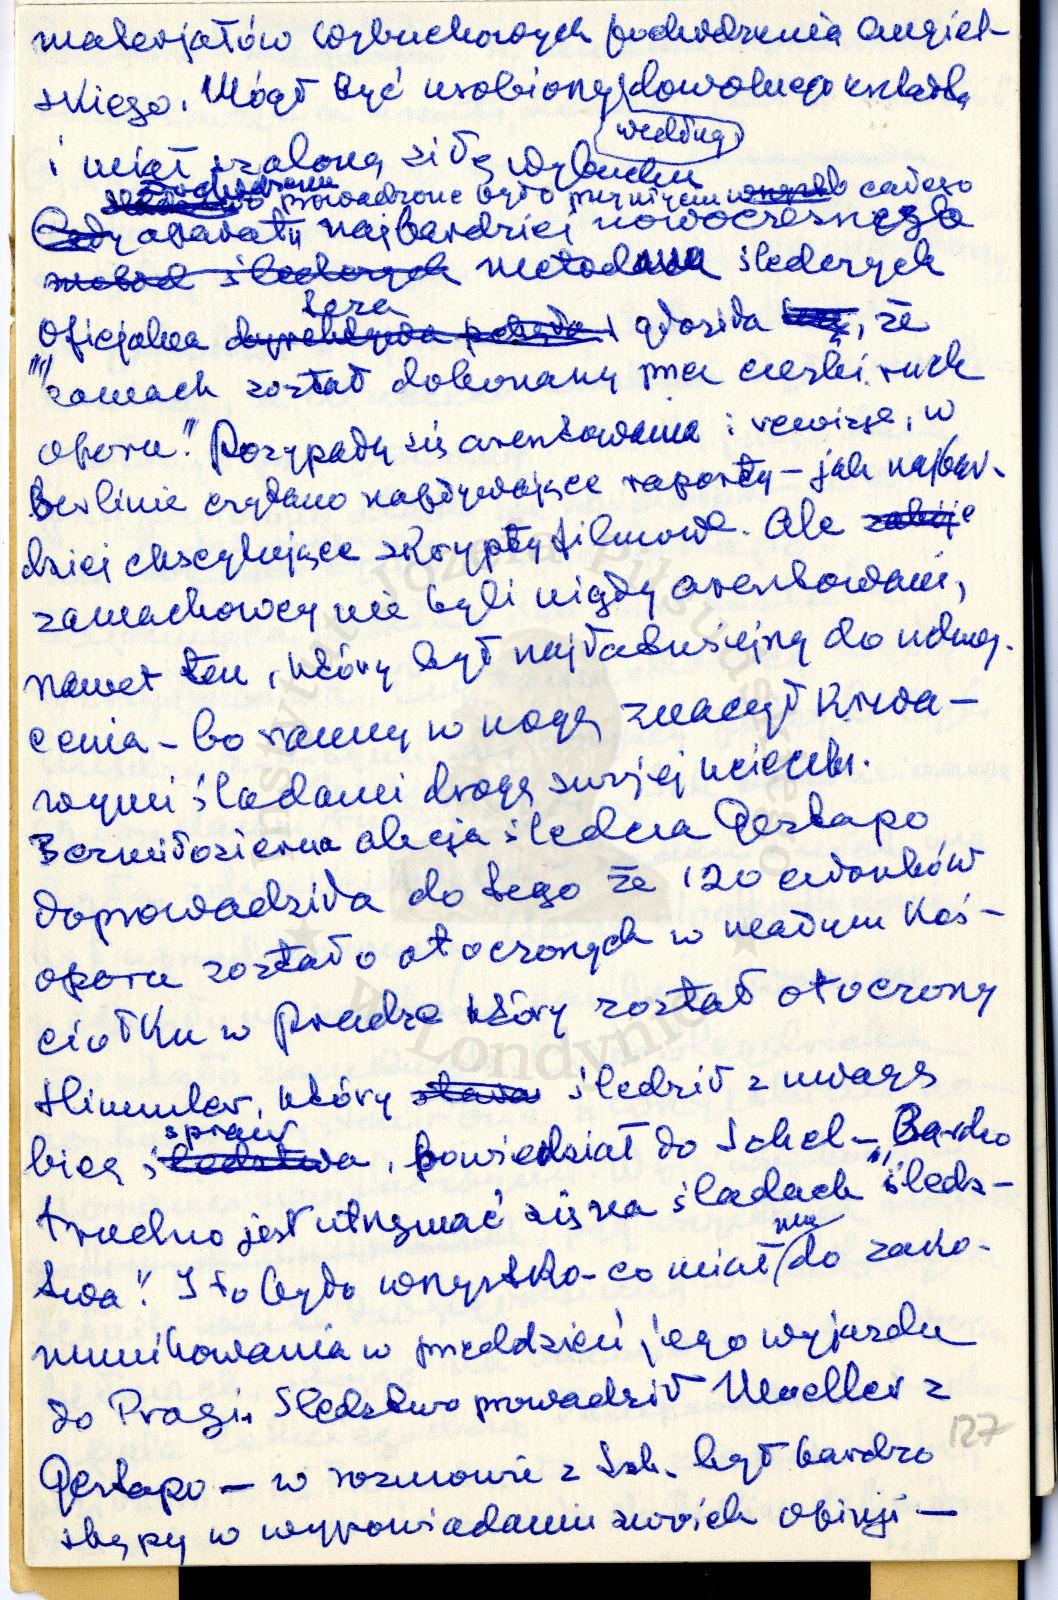 materjałów wybuchowych pochodzenia angiel-
skiego. Mógł być urobiony dowolnego kształtu
według
i miał szaloną siłę wybuchu
Dochodzenie prowadzone było przy użyciu całego
Gdy aparatu najbardziej nowoczesnego
metod śledczych metodami śledczych
teza
Oficjalna głosiła, że
"zamach został dokonany przez czeski ruch
oporu". Posypały się aresztowania i rewizje, w
Berlinie czytano napływające raporty – jak najbar-
dziej ekscytujące skrypty filmowe. Ale
zamachowcy nie byli nigdy aresztowani,
nawet ten, który był najłatwiejszy do uchwy-
cenia – bo ranny w nogę znaczył krwa-
wymi śladami drogę swojej ucieczki.
Bezmiłosierna akcja śledcza Gestapo
doprowadziła do tego że 120 członków
oporu zostało otoczonych w małym koś-
ciołku w Pradze który został otoczony
Himmler, który śledził z uwagą
spraw
bieg śledztwa, powiedział do Schel – "Bardzo
trudno jest utrzymać się na śladach śledz-
mu
twa". I to było wszystko – co miał do zako-
munikowania w przeddzień jego wyjazdu
do Pragi. Śledztwo prowadził Mueller z
127
Gestapo – w rozmowie z Sch. był bardzo
skąpy w wypowiadaniu swoich opinji –
Instytut Józefa Piłsudskiego
w Londynie